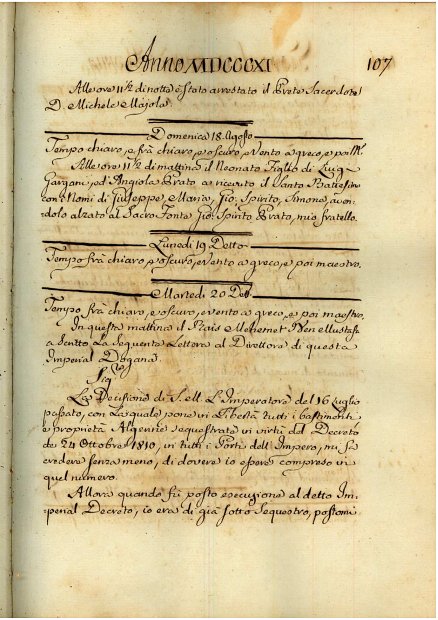 Anno MDCCCXI 107
Alle ore 11 1/2 di notte è stato arrestato il Prete Sacerdote
D. Michele Majola.
Domenica 18. Agosto
Tempo chiaro, e frà chiaro, e oscuro, e vento a greco, e poi M.
Alle ore 11 1/2 di mattina il Neonato Figlio di Luigi
Gargani, ed Angiola Prato a ricevuto il Santo Battesimo
con i Nomi di Giuseppe, Maria, Gio: Spirito, Simone, aven-
dolo alzato al Sacro Fonte Gio: Spirito Prato, mio fratello.
Lunedi 19 Detto
Tempo frà chiaro, e oscuro, e vento a greco, e poi maestro.
Martedi 20 Detº
Tempo frà chiaro, e oscuro, e vento a greco, e poi maestro.
In questa mattina il Rais Mehemet Ben
a scritto La seguente Lettera al Direttore di questa
Imperial Dogana.
Sigre
La Decisione di S. M. L'Imperatore del 16 Luglio
passato, con La quale pone in Libertà tutti i bastimenti
e proprietà Algerine sequestrate in virtù del Decreto
de 24 Ottobre 1810, in tutti i Porti dell'Impero, mi fa
credere senza meno, di dovere io essere compreso in
quel numero.
Allora quando fù posto esecuzione al detto Im-
perial Decreto, io era di già sotto sequestro, postomi